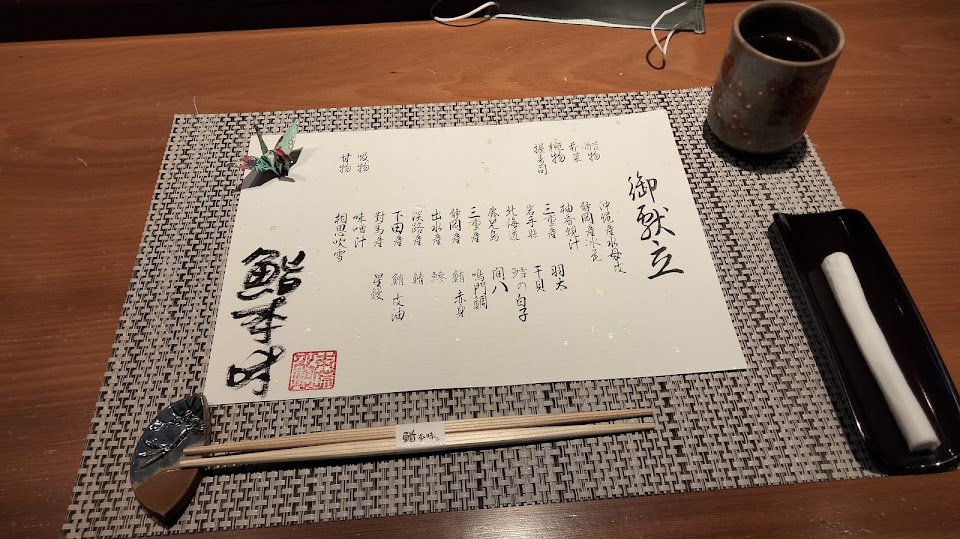 御献立
酢物
前菜
椀物
握寿司
吸物
甘物
沖縄産水母皮
静岡産氷花
柚香蜆汁
三重産 羽太
岩手縣 干貝
北海道 鱈の白子
鹿児島 間八
三重産 鳴門鯛
静岡産 鮪赤身
出水産 鯵
淡路産 鯖
下田産 鮪皮油
對馬産 星鰻
味噌汁
相思吹雪
鮨本味
鮨本味